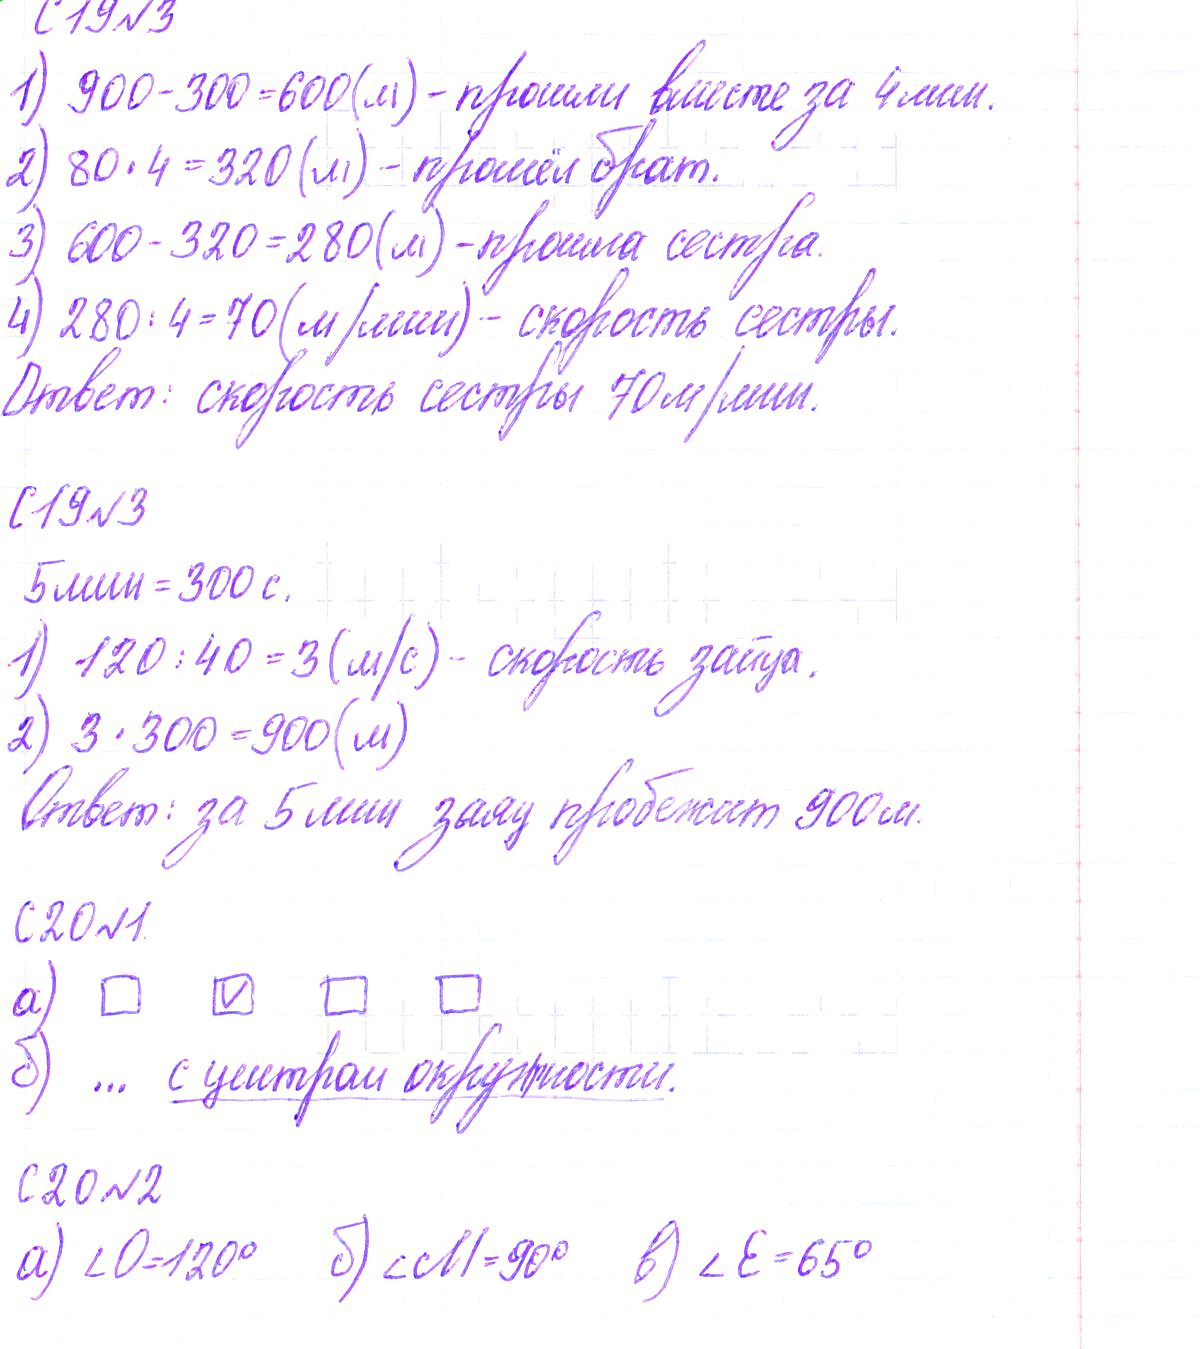 С19№3
1) 900-300=600(м) - прошли вместе за 4мин.
2) 80·4=320(м) - прошёл брат.
3) 600-320=280(м) - прошла сестра.
4) 280:4=70(м/мин) - скорость сестры.
Ответ: скорость сестры 70м/мин.
С19№3
5мин=300с.
1) 120:40=3(м/с) - скорость зайца.
2) 3·300=900(м)
Ответ: за 5мин заяц пробежит 900м.
С20№1.
а)
б) ... с центром окружности.
С20№2
а) ∠O=120° б) ∠M=90° в) ∠E=65°